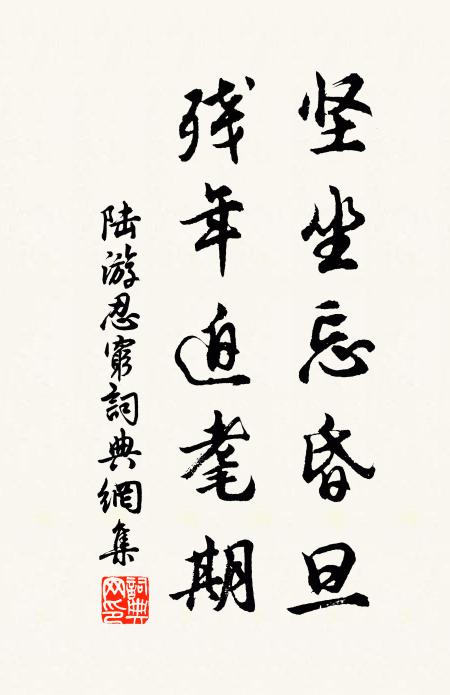 坚坐忘昏旦
残年迫耄期
陆游忍窮詞典網集
詞典网印